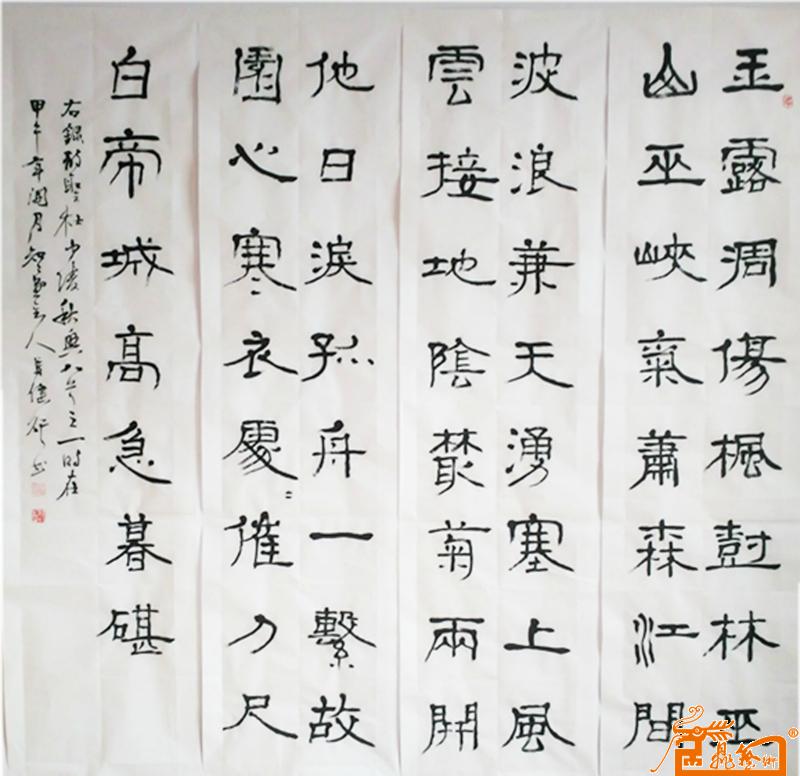 玉露凋傷楓尌林巫
山巫峽氣蕭森江間
波浪兼天湧塞上風
雲接地陰叢菊兩開
他日淚孤舟一繫故
園心寒衣處〻催刀尺
白帝城高急暮碪
右錄詩聖杜少陵秋興八首之一時在
甲午年閏月主人健書